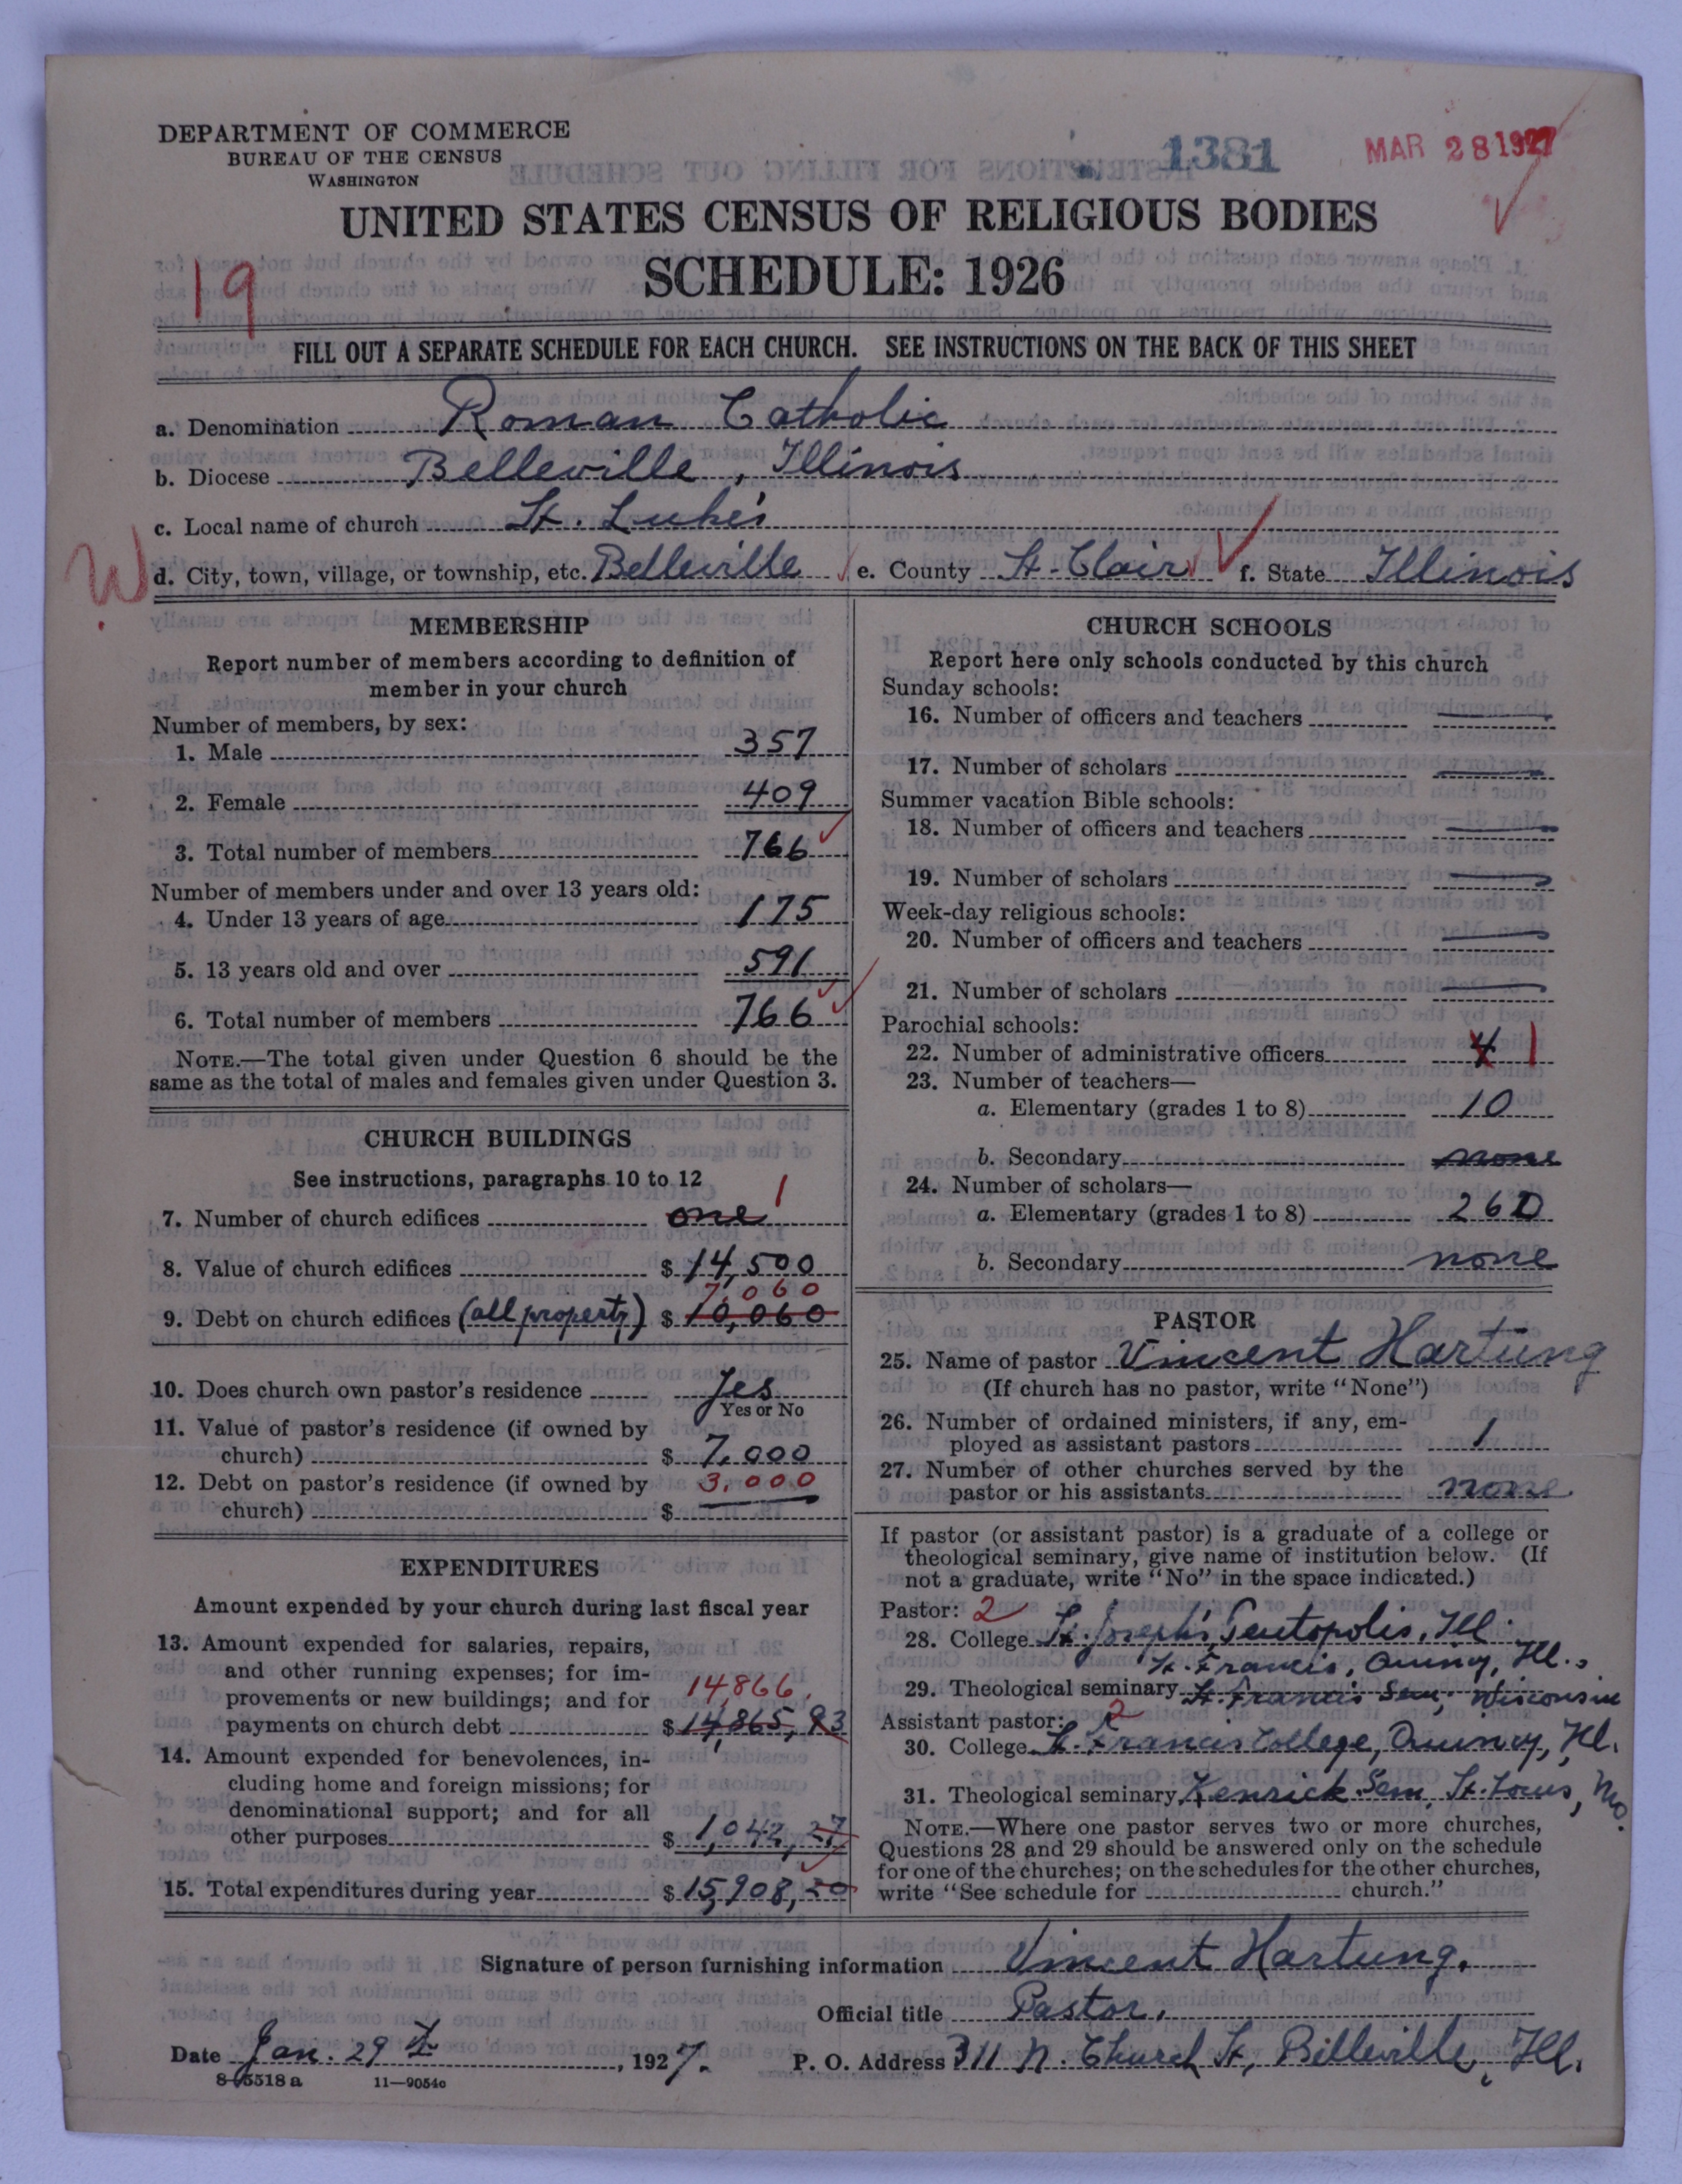 DEPARTMENT OF COMMERCE
BUREAU OF THE CENSUS
WASHINGTON
1381
MAR 28 1927
UNITED STATES CENSUS OF RELIGIOUS BODIES
SCHEDULE: 1926
19
FILL OUT A SEPARATE SCHEDULE FOR EACH CHURCH. SEE INSTRUCTIONS ON THE BACK OF THIS SHEET
a. Denomination Roman Catholic
b. Diocese Belleville, Illinois
c. Local name of church St. Luke's
W
d. City, town, village, or township, etc. Belleville e. County St. Clair f. State Illinois
MEMBERSHIP
Report number of members according to definition of
member in your church
Number of members, by sex:
1. Male 357
2. Female 409
3. Total number of members 766
Number of members under and over 13 years old:
4. Under 13 years of age 175
5. 13 years old and over 591
6. Total number of members 766
NOTE.—The total given under Question 6 should be the
same as the total of males and females given under Question 3.
CHURCH BUILDINGS
See instructions, paragraphs 10 to 12
7. Number of church edifices one 1
8. Value of church edifices $ 14,500
7,060
9. Debt on church edifices (all property) $ 10,060
10. Does church own pastor's residence Yes
Yes or No
11. Value of pastor's residence (if owned by
church) $ 7,000
12. Debt on pastor's residence (if owned by 3,000
church) $
EXPENDITURES
Amount expended by your church during last fiscal year
13. Amount expended for salaries, repairs,
and other running expenses; for im-
provements or new buildings; and for 14,866
payments on church debt $ 14,865,93
14. Amount expended for benevolences, in-
cluding home and foreign missions; for
denominational support; and for all
other purposes $ 1,042,27
15. Total expenditures during year $ 15,908,20
CHURCH SCHOOLS
Report here only schools conducted by this church
Sunday schools:
16. Number of officers and teachers
17. Number of scholars
Summer vacation Bible schools:
18. Number of officers and teachers
19. Number of scholars
Week-day religious schools:
20. Number of officers and teachers
21. Number of scholars
Parochial schools:
22. Number of administrative officers 4 1
23. Number of teachers—
a. Elementary (grades 1 to 8) 10
b. Secondary none
24. Number of scholars—
a. Elementary (grades 1 to 8) 260
b. Secondary none
PASTOR
25. Name of pastor Vincent Hartung
(If church has no pastor, write "None")
26. Number of ordained ministers, if any, em-
ployed as assistant pastors 1
27. Number of other churches served by the
pastor or his assistants none
If pastor (or assistant pastor) is a graduate of a college or
theological seminary, give name of institution below. (If
not a graduate, write "No" in the space indicated.)
Pastor: 2
28. College St. Joseph's, Teutopolis, Ill
St. Francis, Quincy, Ill.
29. Theological seminary St. Francis Sem, Wisconsin
Assistant pastor: 2
30. College St. Francis College, Quincy, Ill.
31. Theological seminary Kenrick Sem, St. Louis, Mo.
NOTE.—Where one pastor serves two or more churches,
Questions 28 and 29 should be answered only on the schedule
for one of the churches; on the schedules for the other churches,
write "See schedule for church."
Signature of person furnishing information Vincent Hartung.
Official title Pastor.
Date Jan. 29th, 1927. P. O. Address 311 N. Church St, Billeville, Ill.
8-5518 a 11—9054c